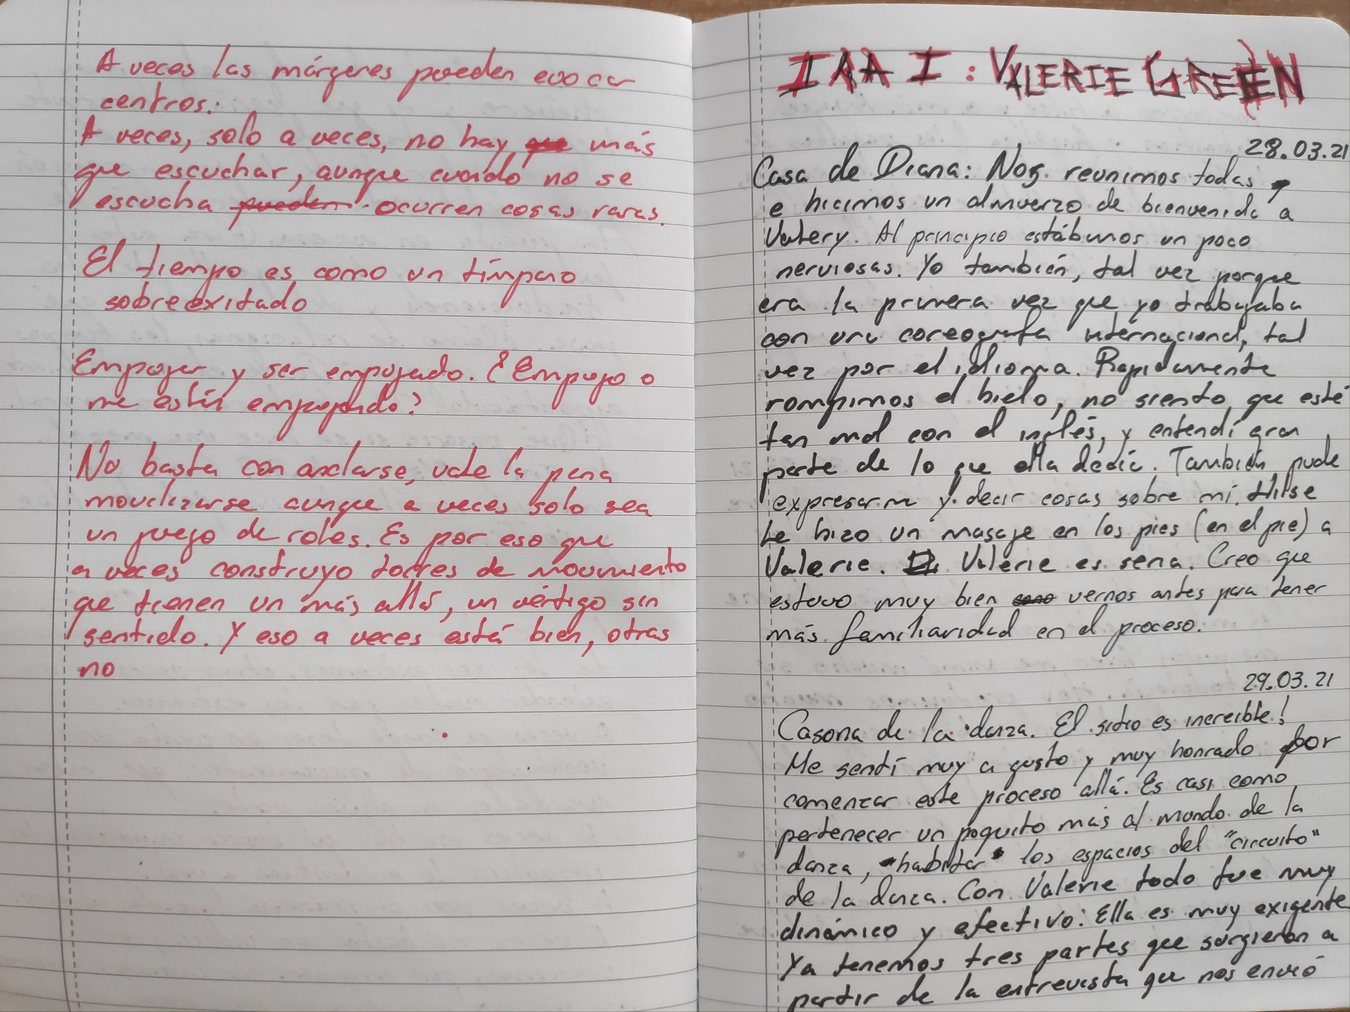 A veces las márgenes pueden evocar
centros.
A veces, solo a veces, no hay que más
que escuchar, aunque cuando no se
escucha pueden ocurren cosas raras.
El tiempo es como un tímpano
sobreexitado
Empojar y ser empojado. ¿Empojo o
me están empojando?
No basta con anclarse, vale la pena
movilizarse aunque a veces solo sea
un juego de roles. Es por eso que
a veces construyo torres de movimiento
que tienen un más allá, un vértigo sin
sentido. Y eso a veces está bien, otras
no
IAA I: VALERIE GREEN
28.03.21
Casa de Diana: Nos reunimos todas,
e hicimos un almuerzo de bienvenida a
Valery. Al principio estábamos un poco
nerviosas. Yo también, tal vez porque
era la primera vez que yo trabajaba
con una coreógrafa internacional, tal
vez por el idioma. Rapidamente
rompimos el hielo, no siento que esté
tan mal con el inglés, y entendí gran
parte de lo que ella decía. También pude
expresarme y decir cosas sobre mí. Hilse
le hizo un masaje en los pies (en el pie) a
Valerie. Valerie es seria. Creo que
estuvo muy bien como vernos antes para tener
más familiaridad en el proceso.
29.03.21
Casona de la danza. El sitio es increíble!
Me sentí muy a gusto y muy honrado por
comenzar este proceso allá. Es casi como
pertenecer un poquito más al mundo de la
danza, "habitar" los espacios del "circuito"
de la danza. Con Valerie todo fue muy
dinámico y efectivo: Ella es muy exigente
Ya tenemos tres partes que surgieron a
partir de la entrevista que nos envió